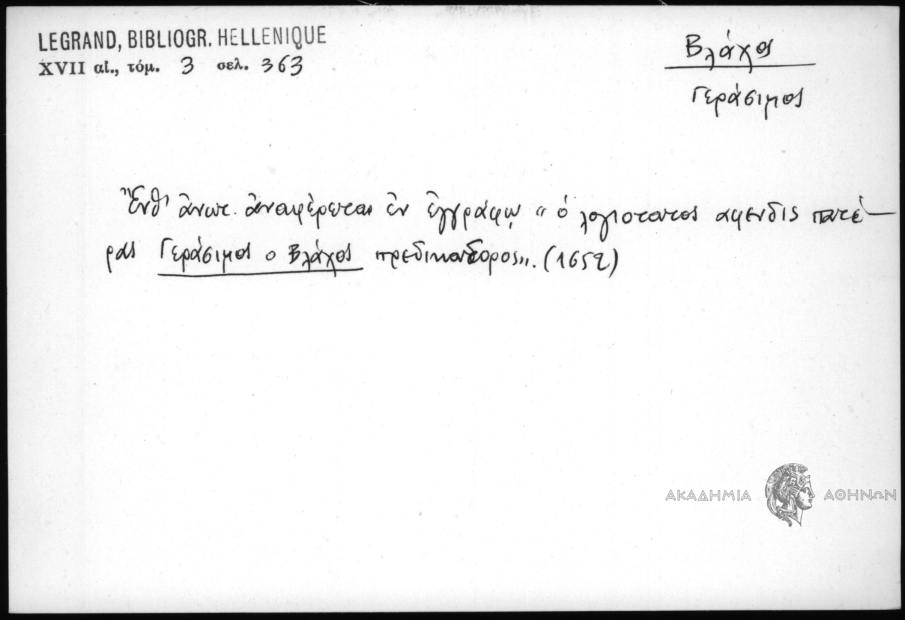 LEGRAND, BIBLIOGR. HELLENIQUE
XVII αἰ., τόμ. 3 σελ. 363
Βλάχος
Γεράσιμος
Ἔνθ' ἄνωτ. ἀναφέρεται ἐν ἐγγράφῳ „ ὁ λογιοτατος αφενδις πατέ–
ρας Γεράσιμος ο Βλάχος πρεδικαδορος„. (1652)
ΑΚΑΔΗΜΙΑ ΑΘΗΝΩΝ